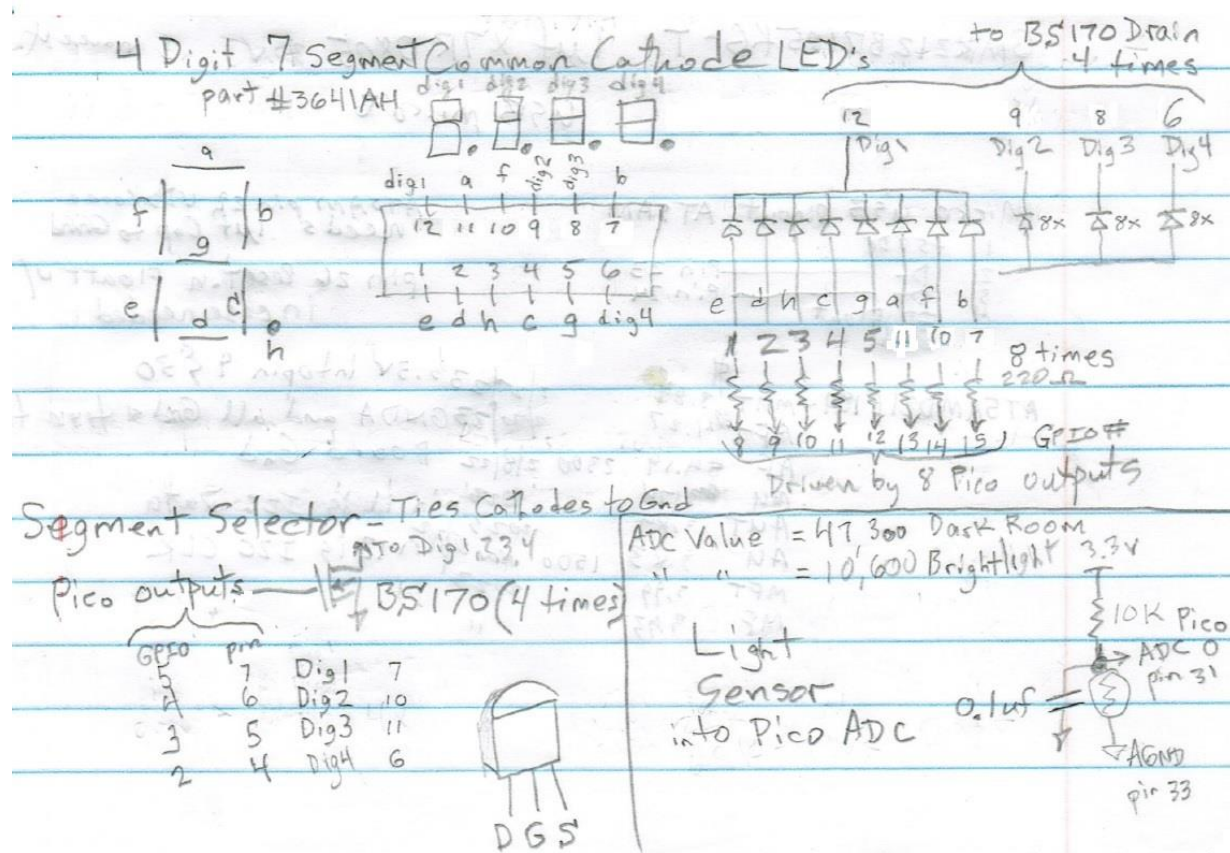 4 Digit 7 Segment Common Cathode LED's
part #3641AH
to BS170 Drain
4 times
dig1 dig2 dig3 dig4
12 9 8 6
Dig1 Dig2 Dig3 Dig4
a
f b
g
e c
d
h
dig1 a f dig2 dig3 b
12 11 10 9 8 7
1 2 3 4 5 6
e d h c g dig4
8x 8x 8x
e d h c g a f b
1 2 3 4 5 11 10 7
8 times
220 Ω
8 9 10 11 12 13 14 15 GPIO#
Driven by 8 Pico outputs
Segment Selector - Ties Cathodes to Gnd
to Dig 1,2,3,4
Pico outputs
BS170 (4 times)
GPIO pin
5 7 Dig1 7
4 6 Dig2 10
3 5 Dig3 11
2 4 Dig4 6
D G S
ADC Value = 47,300 Dark Room
" " = 10,600 Bright light
3.3V
10K Pico
ADC 0
pin 31
0.1uf
AGND
pin 33
Light
Sensor
into Pico ADC